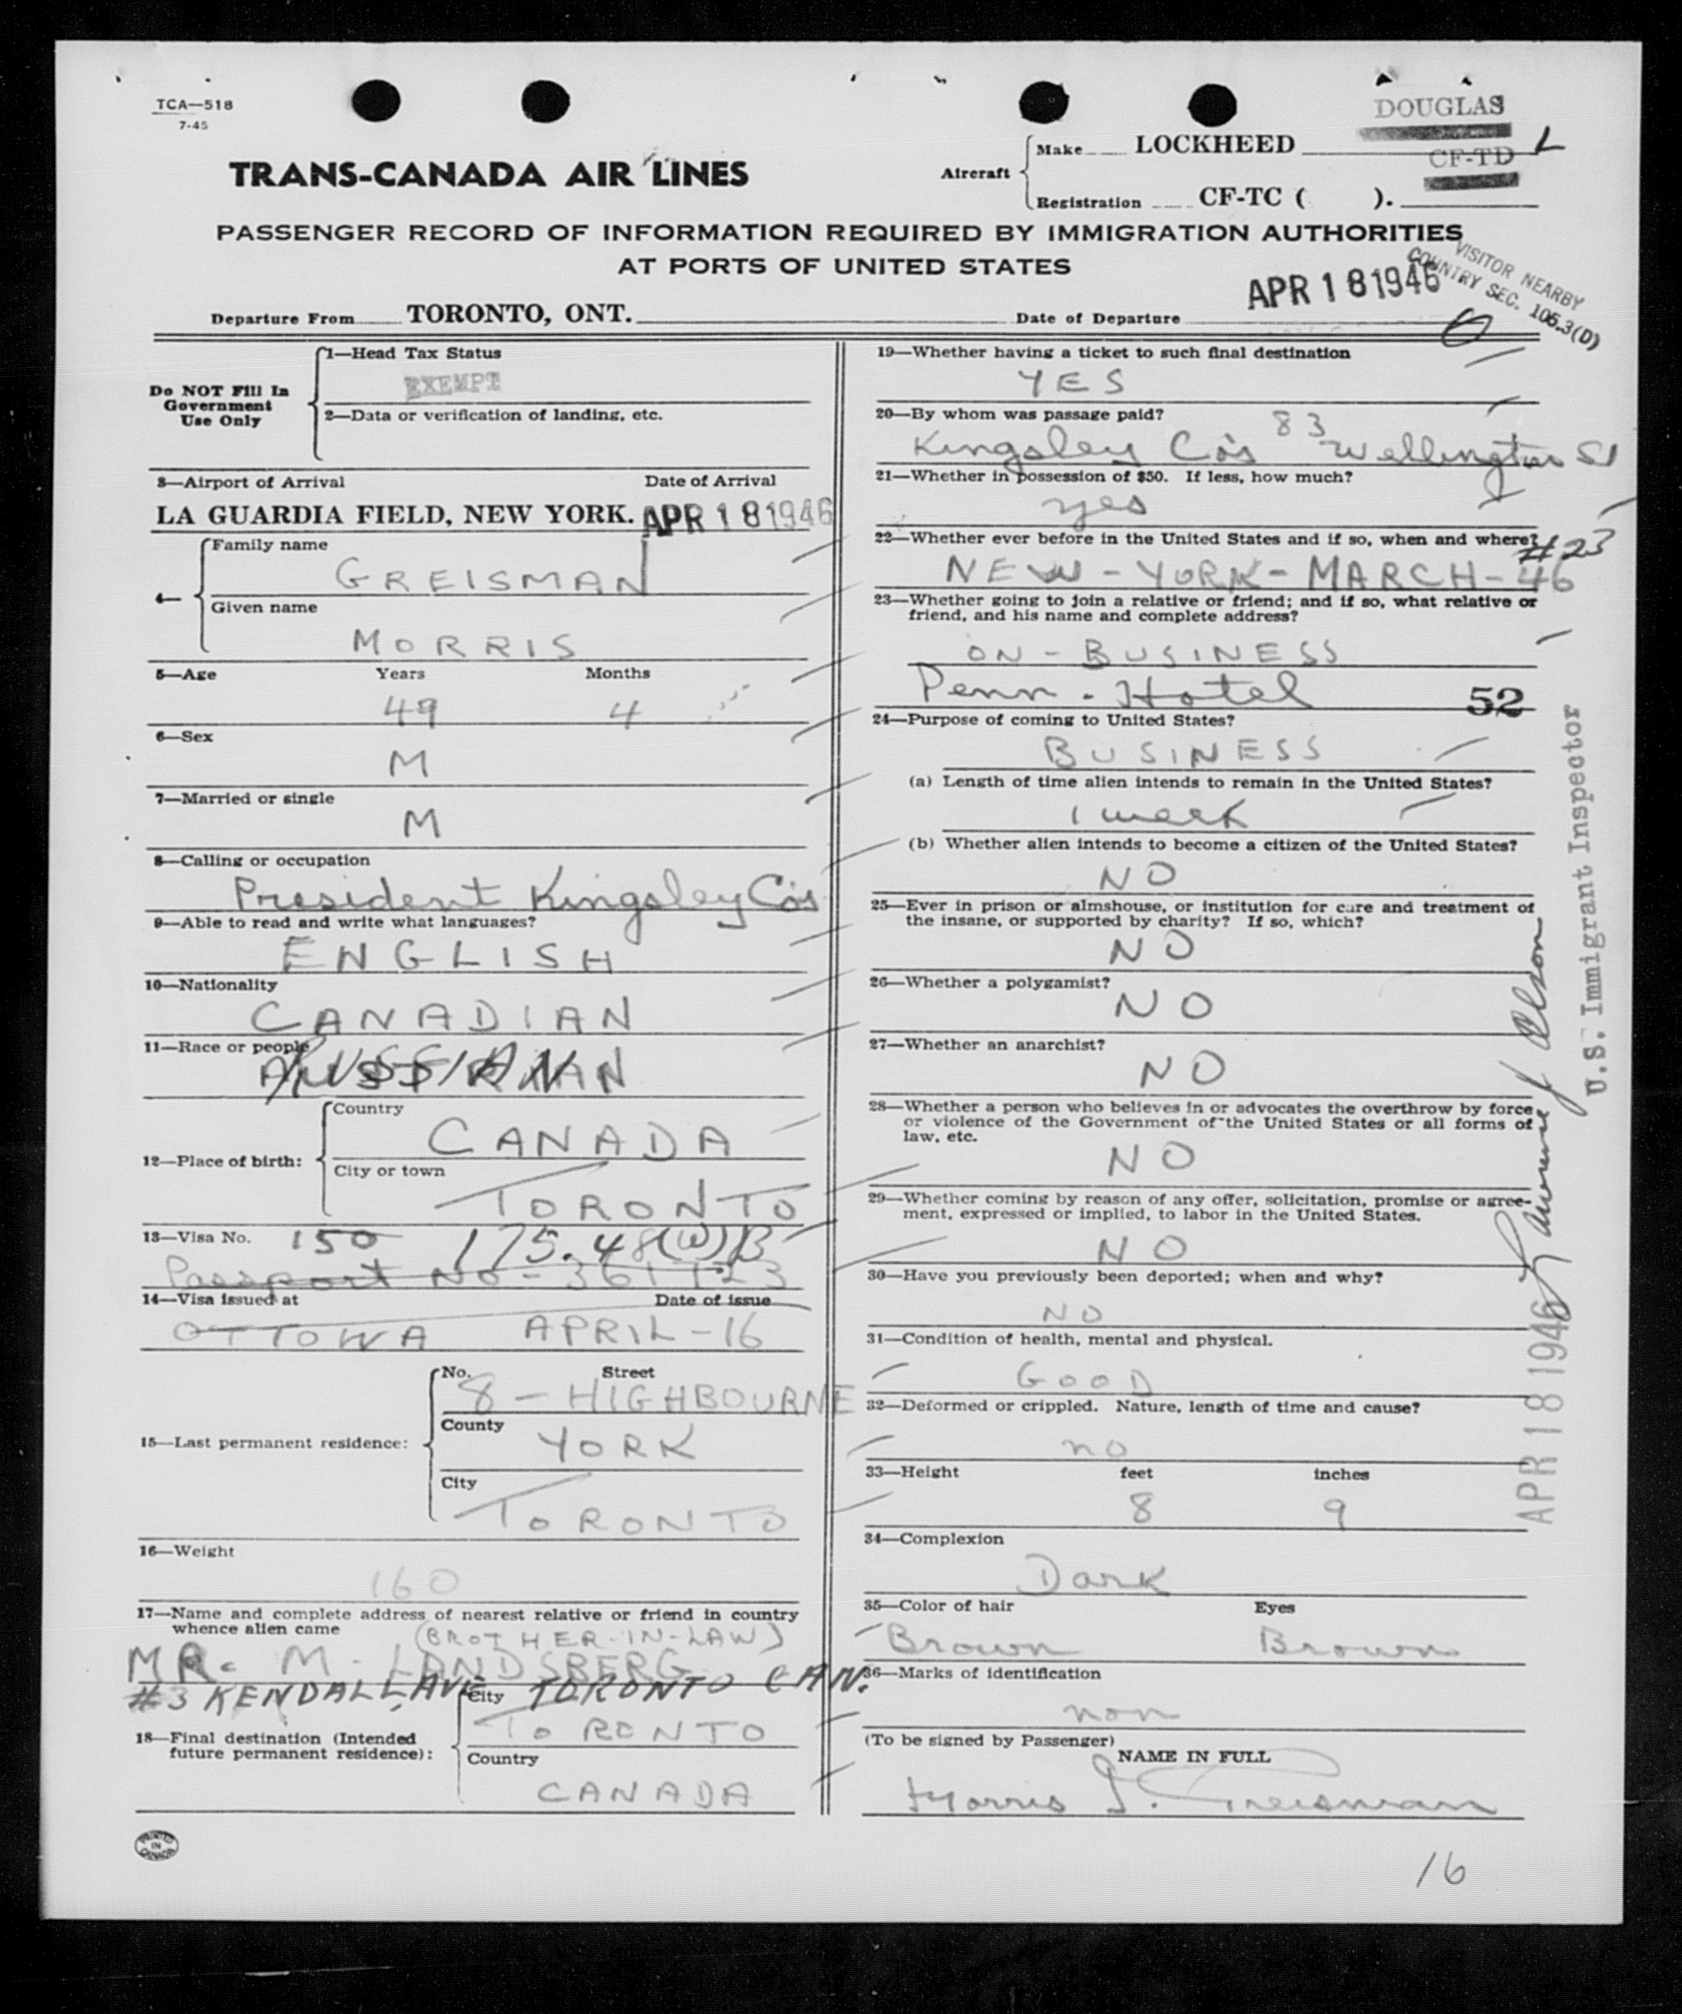 TCA—518
7-45
DOUGLAS
TRANS-CANADA AIR LINES
Aircraft
Make LOCKHEED
CF-TD L
Registration CF-TC ( ).
PASSENGER RECORD OF INFORMATION REQUIRED BY IMMIGRATION AUTHORITIES
AT PORTS OF UNITED STATES
VISITOR NEARBY
COUNTRY SEC. 105.3(D)
APR 18 1946
Departure From TORONTO, ONT. Date of Departure
Do NOT Fill In
Government
Use Only
1—Head Tax Status
EXEMPT
2—Data or verification of landing, etc.
3—Airport of Arrival Date of Arrival
LA GUARDIA FIELD, NEW YORK. APR 18 1946
4—
Family name
GREISMAN
Given name
MORRIS
5—Age Years Months
49 4
6—Sex
M
7—Married or single
M
8—Calling or occupation
President Kingsley Co's
9—Able to read and write what languages?
ENGLISH
10—Nationality
CANADIAN
11—Race or people
RUSSIAN
12—Place of birth:
Country
CANADA
City or town
TORONTO
13—Visa No. 150 175.48(W)B
Passport No - 361123
14—Visa issued at Date of issue
OTTOWA APRIL-16
15—Last permanent residence:
No. Street
8 - HIGHBOURNE
County
YORK
City
TORONTO
16—Weight
160
17—Name and complete address of nearest relative or friend in country
whence alien came
(BROTHER-IN-LAW)
MR. M. LANDSBERG
#3 KENDALL AVE TORONTO CAN.
18—Final destination (Intended
future permanent residence):
City
TORONTO
Country
CANADA
PRINTED
IN
CANADA
19—Whether having a ticket to such final destination
YES
20—By whom was passage paid?
Kingsley Co's 83 Wellington St
21—Whether in possession of $50. If less, how much?
yes
22—Whether ever before in the United States and if so, when and where?
#23
NEW-YORK-MARCH-46
23—Whether going to join a relative or friend; and if so, what relative or
friend, and his name and complete address?
ON - BUSINESS
Penn - Hotel 52
24—Purpose of coming to United States?
BUSINESS
(a) Length of time alien intends to remain in the United States?
1 week
(b) Whether alien intends to become a citizen of the United States?
NO
25—Ever in prison or almshouse, or institution for care and treatment of
the insane, or supported by charity? If so, which?
NO
26—Whether a polygamist?
NO
27—Whether an anarchist?
NO
28—Whether a person who believes in or advocates the overthrow by force
or violence of the Government of the United States or all forms of
law, etc.
NO
29—Whether coming by reason of any offer, solicitation, promise or agree-
ment, expressed or implied, to labor in the United States.
NO
30—Have you previously been deported; when and why?
NO
31—Condition of health, mental and physical.
GOOD
32—Deformed or crippled. Nature, length of time and cause?
no
33—Height feet inches
8 9
34—Complexion
Dark
35—Color of hair Eyes
Brown Brown
36—Marks of identification
non
(To be signed by Passenger)
NAME IN FULL
Morris I. Greisman
16
U.S. Immigrant Inspector
APR 18 1946